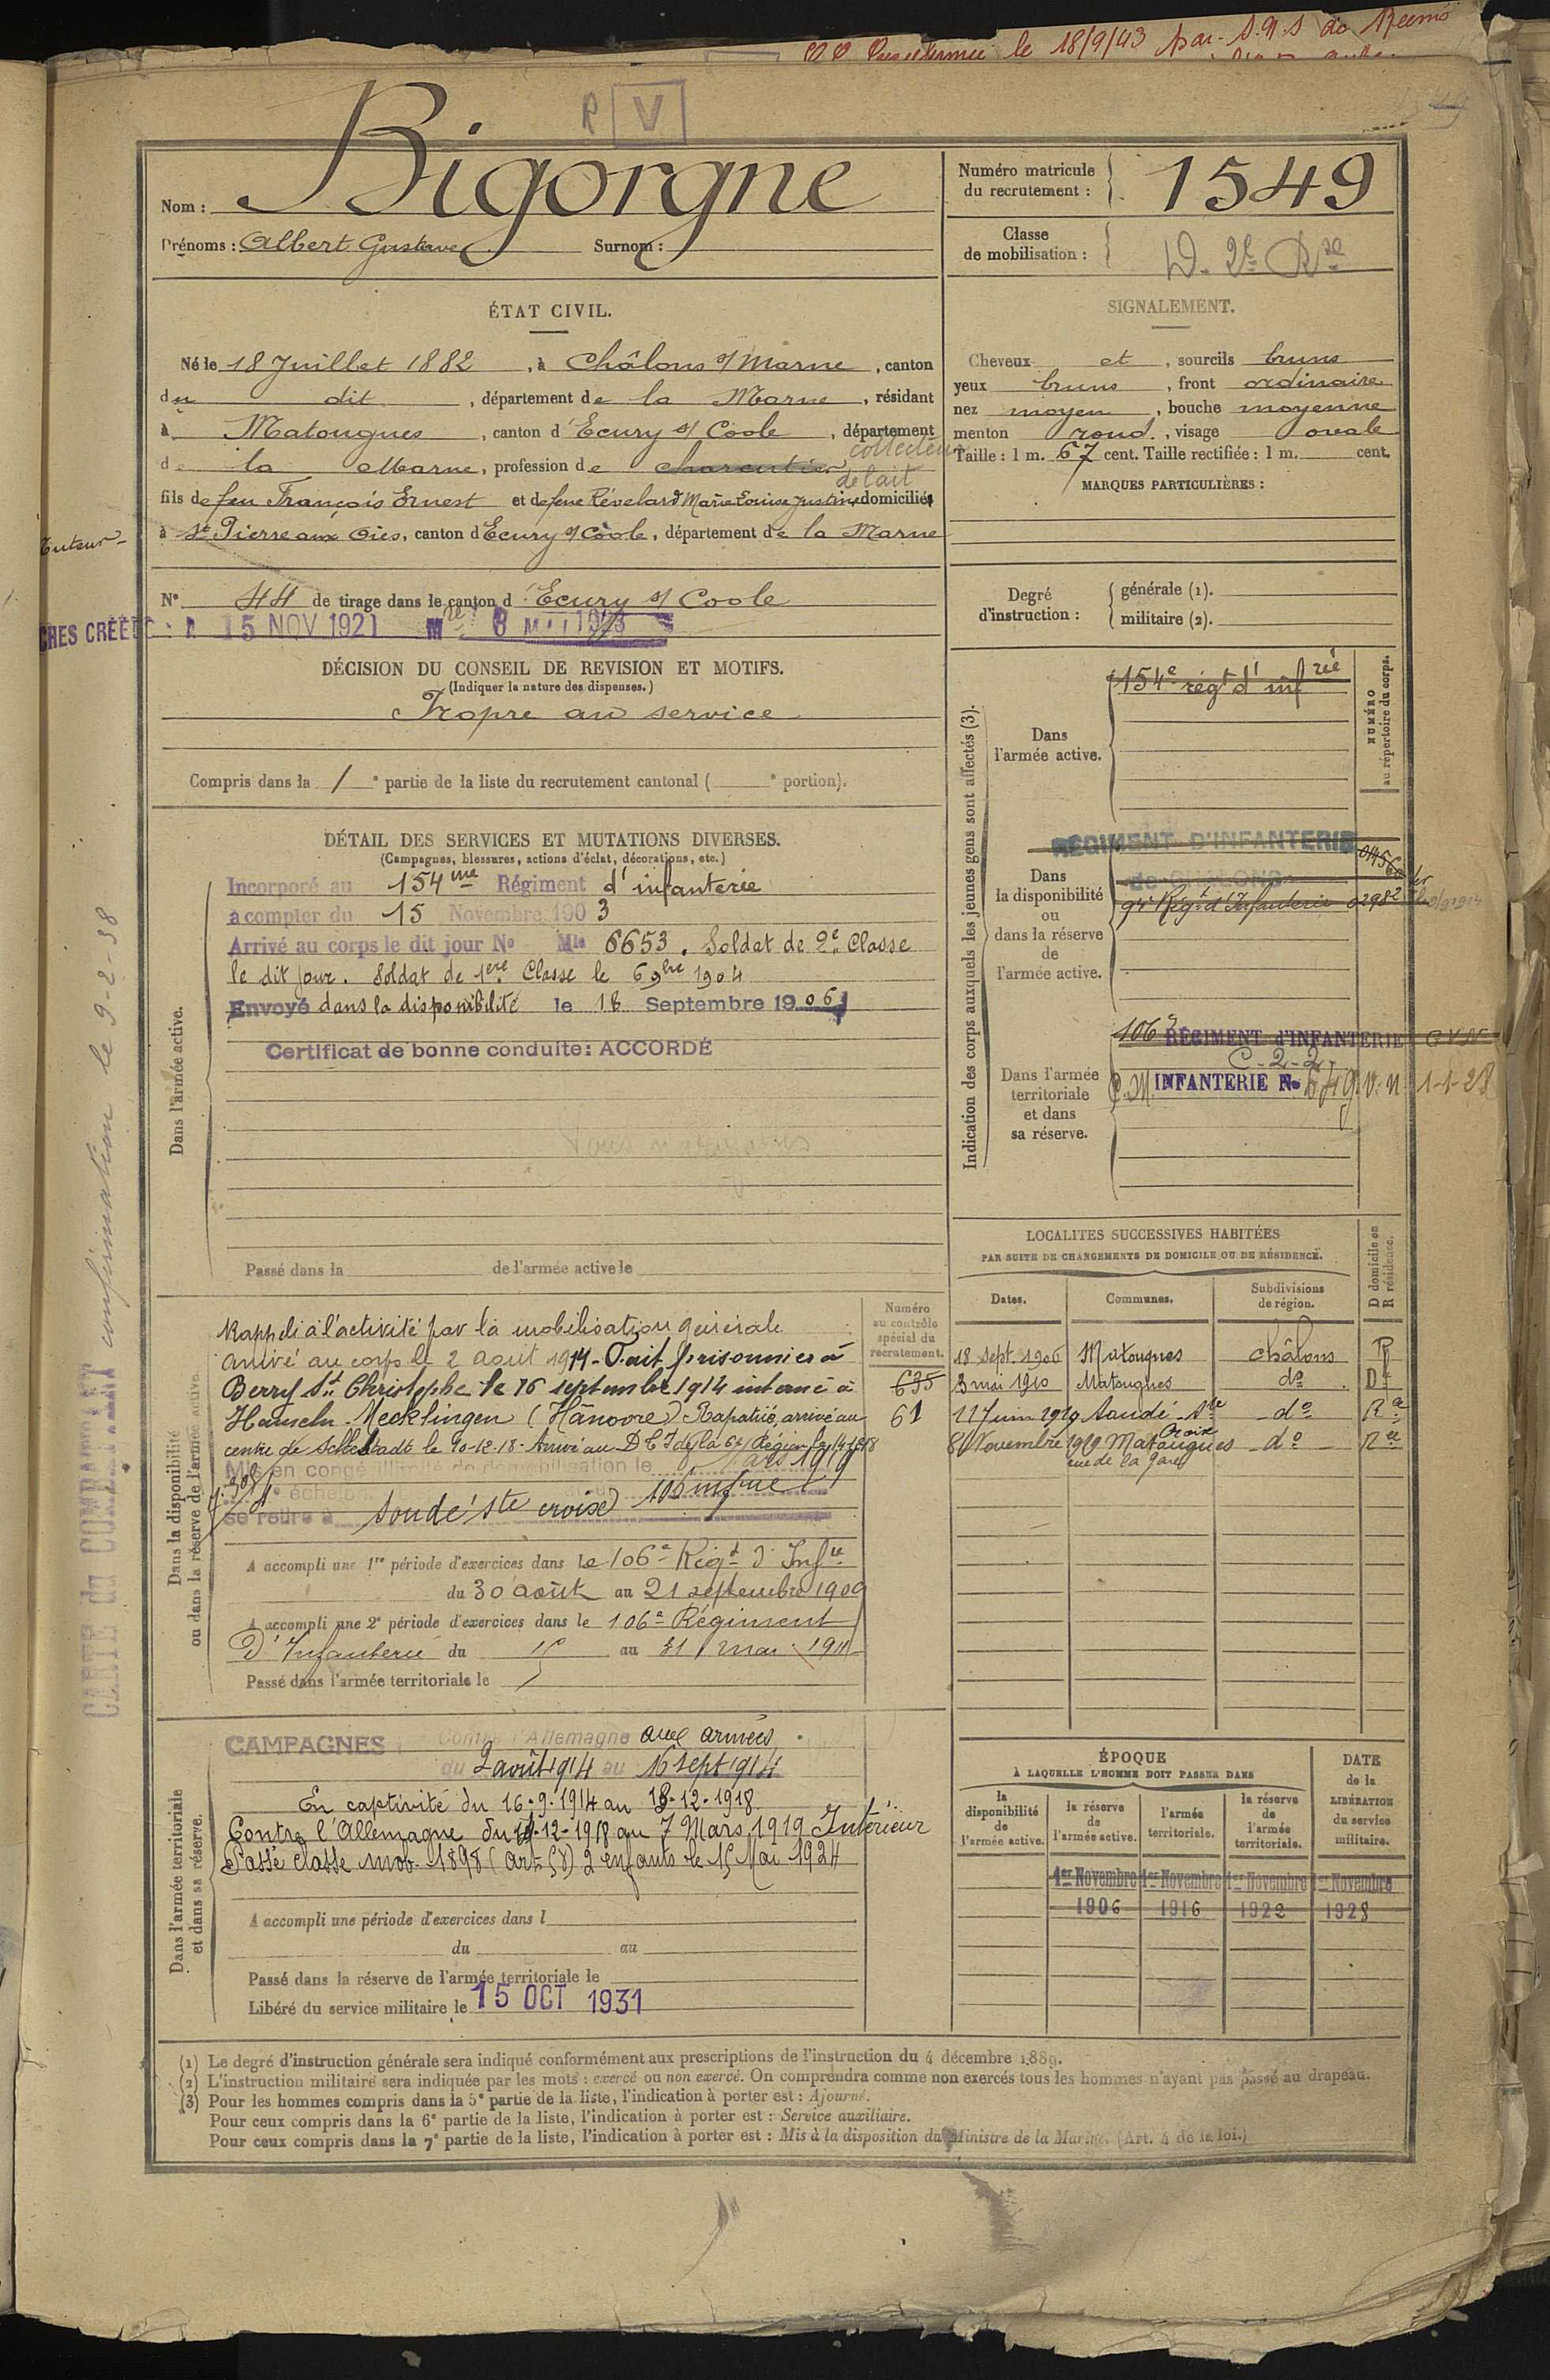 le 18/9/43 par
R V
Nom : Bigorgne
Prénoms : Albert Gustave Surnom :
Numéro matricule
du recrutement : 1549
Classe
de mobilisation :
ÉTAT CIVIL.
Né le 18 Juillet 1882, à Châlons s/ Marne, canton
du dit, département de la Marne, résidant
à Matougues, canton d'Ecury s/ Coole, département
collecteur
de la Marne, profession de charcutier
de lait
fils de feu François Ernest et de feue Révelard Marie Louise Justine domiciliés
Tuteur
à St Pierre aux Oies, canton d'Ecury s/ Coole, département de la Marne
N° 44 de tirage dans le canton d'Ecury s/ Coole
15 NOV 1921
DÉCISION DU CONSEIL DE REVISION ET MOTIFS.
(Indiquer la nature des dispenses.)
Propre au service
Compris dans la 1e partie de la liste du recrutement cantonal ( e portion).
SIGNALEMENT.
Cheveux et, sourcils bruns
yeux bruns, front ordinaire
nez moyen, bouche moyenne
menton rond, visage ovale
Taille : 1 m. 67 cent. Taille rectifiée : 1 m. cent.
MARQUES PARTICULIÈRES :
Degré
d'instruction :
générale (1).
militaire (2).
DÉTAIL DES SERVICES ET MUTATIONS DIVERSES.
(Campagnes, blessures, actions d'éclat, décorations, etc.)
Dans l'armée active.
Incorporé au 154me Régiment d'infanterie
à compter du 15 Novembre 1903
Arrivé au corps le dit jour No Mle 6653. Soldat de 2e Classe
le dit jour. Soldat de 1ere Classe le 6 9bre 1904
Envoyé dans la disponibilité le 18 Septembre 1906
Certificat de bonne conduite : ACCORDÉ
Passé dans la de l'armée active le
Indication des corps auxquels les jeunes gens sont affectés (3).
NUMÉRO
au répertoire du corps.
Dans
l'armée active.
154e régt d'infrie
Dans
la disponibilité
ou
dans la réserve
de
l'armée active.
RÉGIMENT D'INFANTERIE
de CHALONS
94e Régt d'Infanterie 02982
Dans l'armée
territoriale
et dans
sa réserve.
106e RÉGIMENT d'INFANTERIE
C-2-2
C.M. INFANTERIE No 6 1-1-28
LOCALITÉS SUCCESSIVES HABITÉES
PAR SUITE DE CHANGEMENTS DE DOMICILE OU DE RÉSIDENCE.
Dates. Communes. Subdivisions
de région. D domicile ou
R résidence.
18 Sept. 1906 Matougues Châlons R
3 mai 1910 Matougues do D
11 Juin 1919 Soudé-Ste Croix do Re
8 Novembre 1919 Matougues do Re
rue de la Gare
Dans la disponibilité
ou dans la réserve de l'armée active.
Numéro
au contrôle
spécial du
recrutement.
635
61
Rappelé à l'activité par la mobilisation générale
arrivé au corps le 2 aout 1914 - Fait prisonnier à
Berry St Christophe le 16 septembre 1914 interné à
Hameln - Mecklingen (Hânovre) Rapatrié, arrivé au
centre de Schlestadt le 10-12-18 - Arrivé au
Mis en congé illimité de démobilisation le Mars 1919
e échelon
se retire à Soudé Ste croix
A accompli une 1re période d'exercices dans le 106e Régt d'Infie
du 30 août au 21 septembre 1909
A accompli une 2e période d'exercices dans le 106e Régiment
D'Infanterie du 15 au 31 mai 1911
Passé dans l'armée territoriale le
Dans l'armée territoriale
et dans sa réserve.
CAMPAGNES : Contre l'Allemagne aux armées
du 2 août 1914 au 16 sept 1914
En captivité du 16-9-1914 au 18-12-1918
Contre l'Allemagne du 19-12-1918 au 7 Mars 1919 Intérieur
Passé classe mob. 1898 (art 58) 2 enfants le 15 Mai 1924
A accompli une période d'exercices dans l
du au
Passé dans la réserve de l'armée territoriale le
Libéré du service militaire le 15 OCT 1931
ÉPOQUE
À LAQUELLE L'HOMME DOIT PASSER DANS
la
disponibilité
de
l'armée active.
la réserve
de
l'armée active.
l'armée
territoriale.
la réserve
de
l'armée
territoriale.
DATE
de la
LIBÉRATION
du service
militaire.
1er Novembre 1er Novembre 1er Novembre 1er Novembre
1906 1916 1922 1928
CARTE du COMBATTANT confirmation le 9-2-38
(1) Le degré d'instruction générale sera indiqué conformément aux prescriptions de l'instruction du 4 décembre 1889.
(2) L'instruction militaire sera indiquée par les mots : exercé ou non exercé. On comprendra comme non exercés tous les hommes n'ayant pas passé au drapeau.
(3) Pour les hommes compris dans la 5e partie de la liste, l'indication à porter est : Ajourné.
Pour ceux compris dans la 6e partie de la liste, l'indication à porter est : Service auxiliaire.
Pour ceux compris dans la 7e partie de la liste, l'indication à porter est : Mis à la disposition du Ministre de la Marine. (Art. 4 de la loi.)